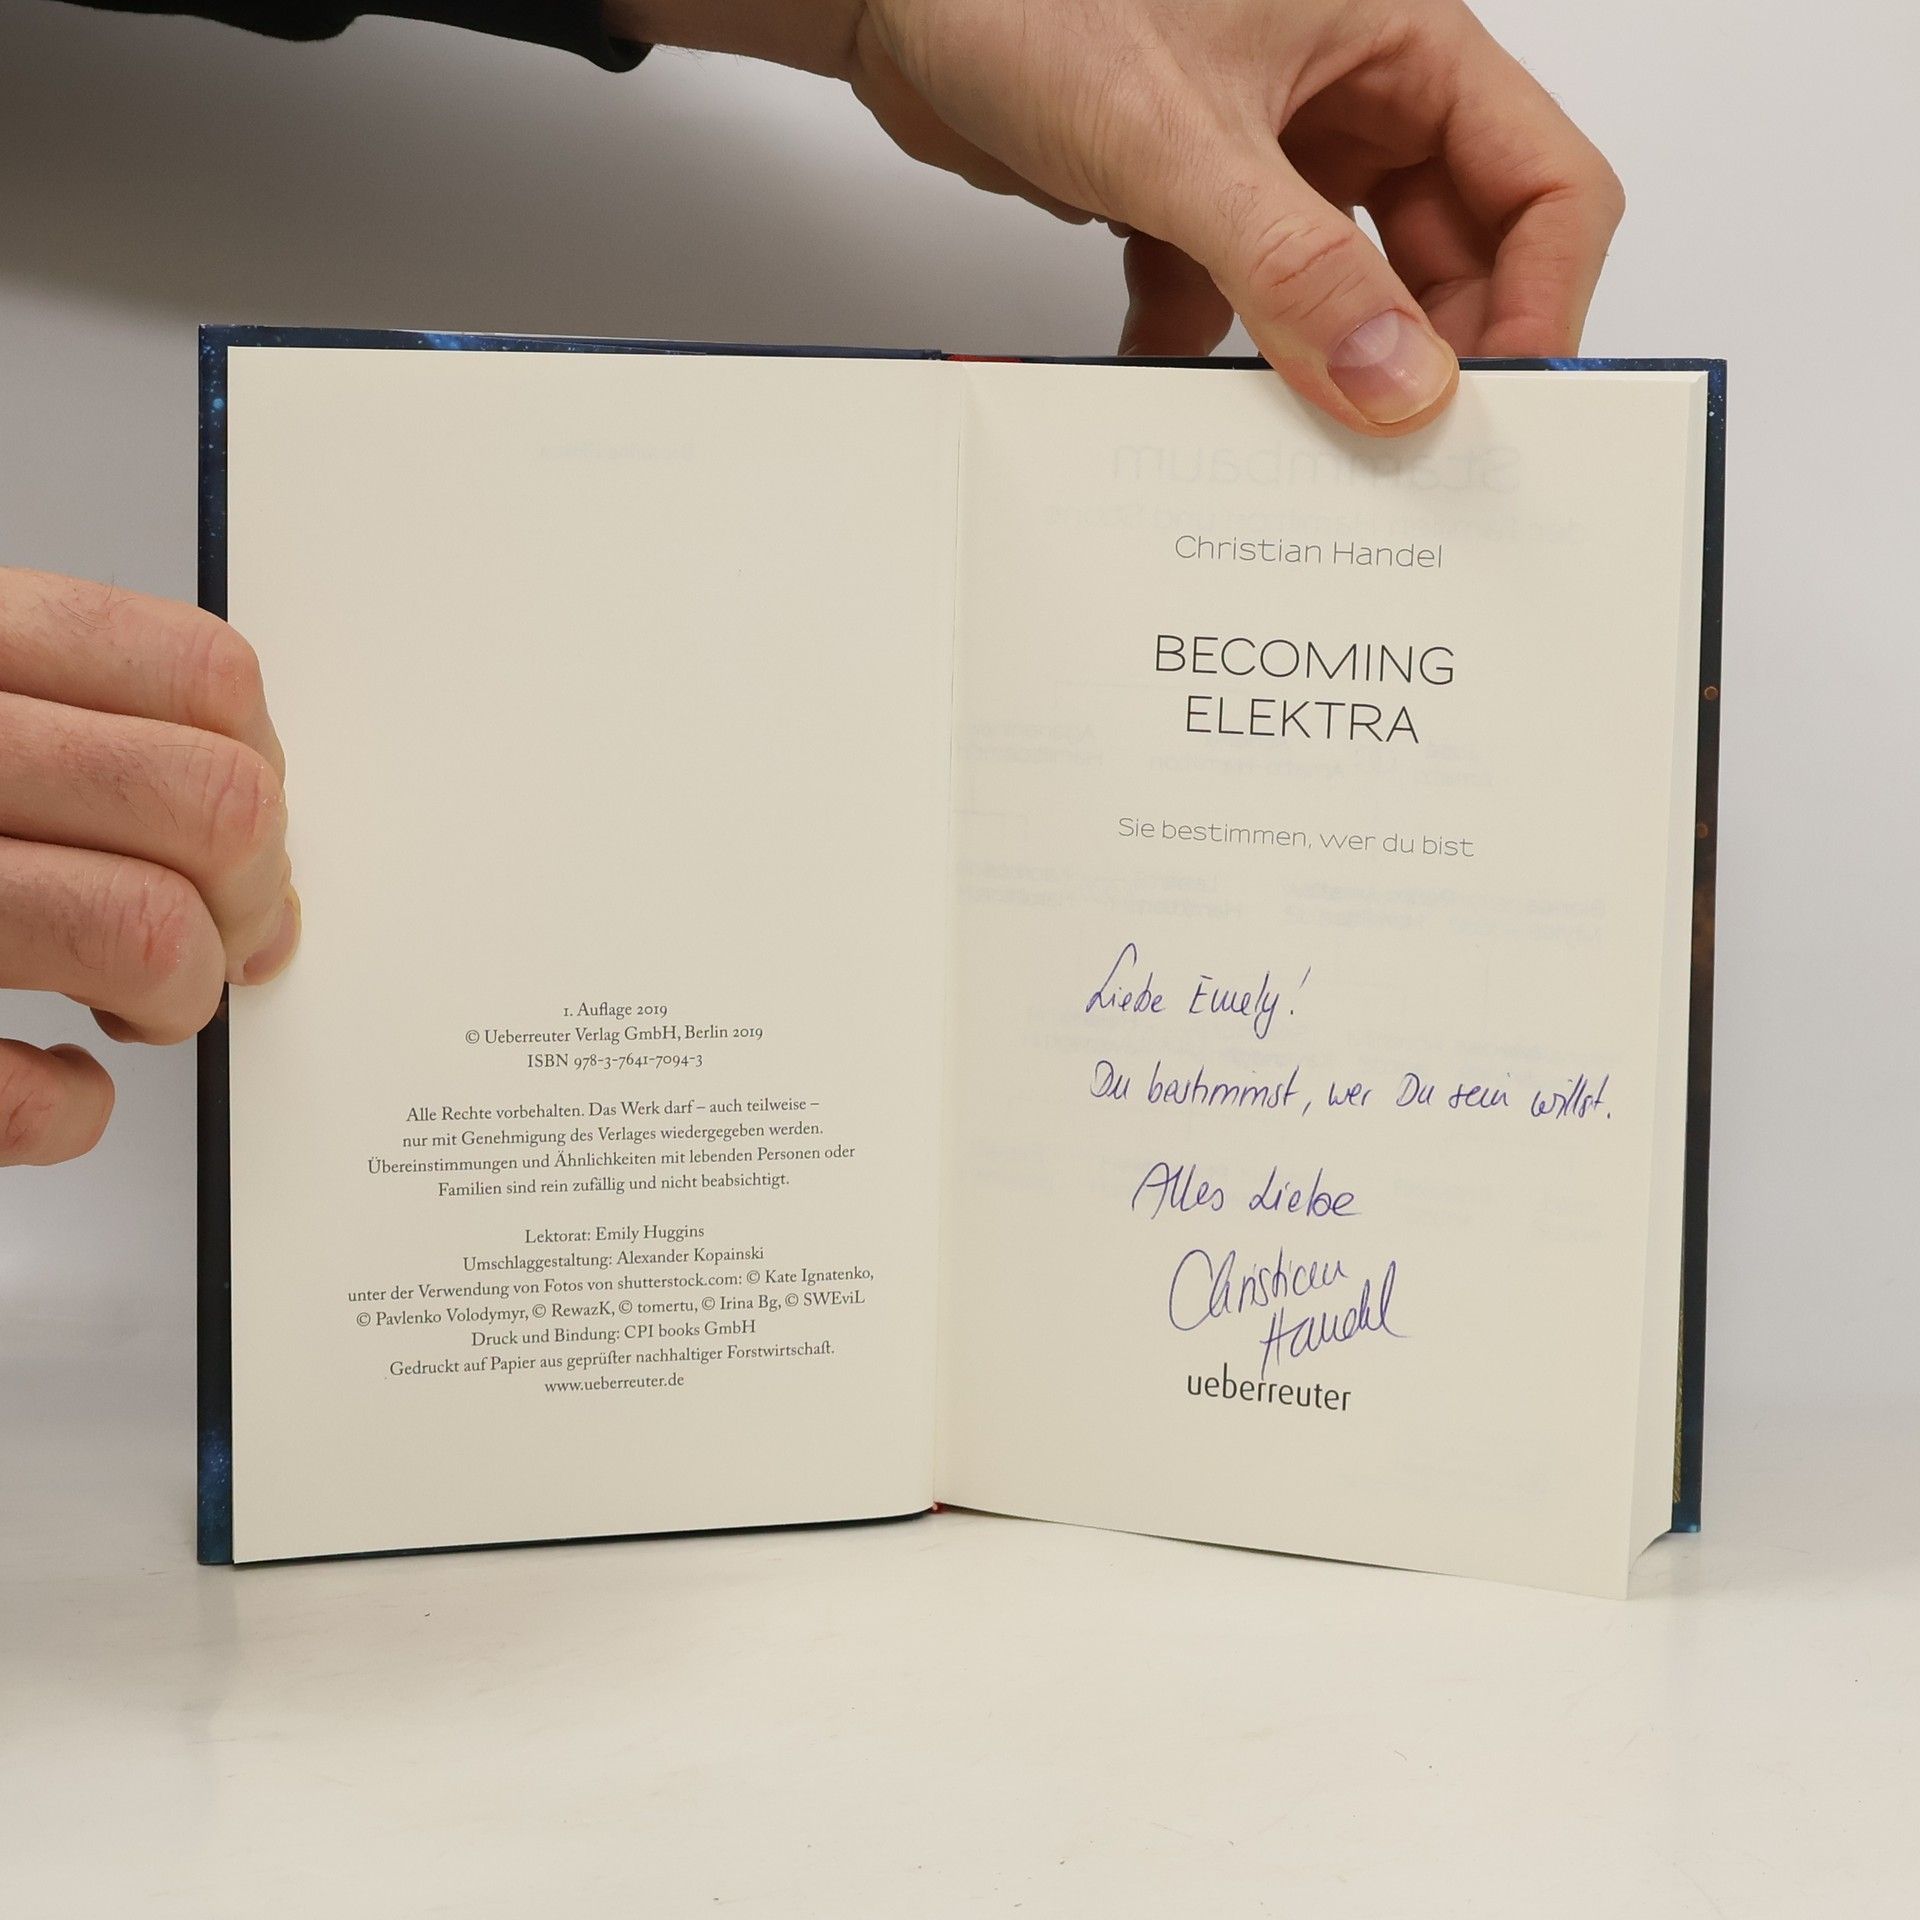 1. Auflage 2019
© Ueberreuter Verlag GmbH, Berlin 2019
ISBN 978-3-7641-7094-3
Alle Rechte vorbehalten. Das Werk darf – auch teilweise –
nur mit Genehmigung des Verlages wiedergegeben werden.
Übereinstimmungen und Ähnlichkeiten mit lebenden Personen oder
Familien sind rein zufällig und nicht beabsichtigt.
Lektorat: Emily Huggins
Umschlaggestaltung: Alexander Kopainski
unter der Verwendung von Fotos von shutterstock.com: © Kate Ignatenko,
© Pavlenko Volodymyr, © RewazK, © tomertu, © Irina Bg, © SWEviL
Druck und Bindung: CPI books GmbH
Gedruckt auf Papier aus geprüfter nachhaltiger Forstwirtschaft.
www.ueberreuter.de
Christian Handel
BECOMING
ELEKTRA
Sie bestimmen, wer du bist
Liebe Emely!
Du bestimmst, wer Du sein willst.
Alles Liebe
Christian
Handel
ueberreuter